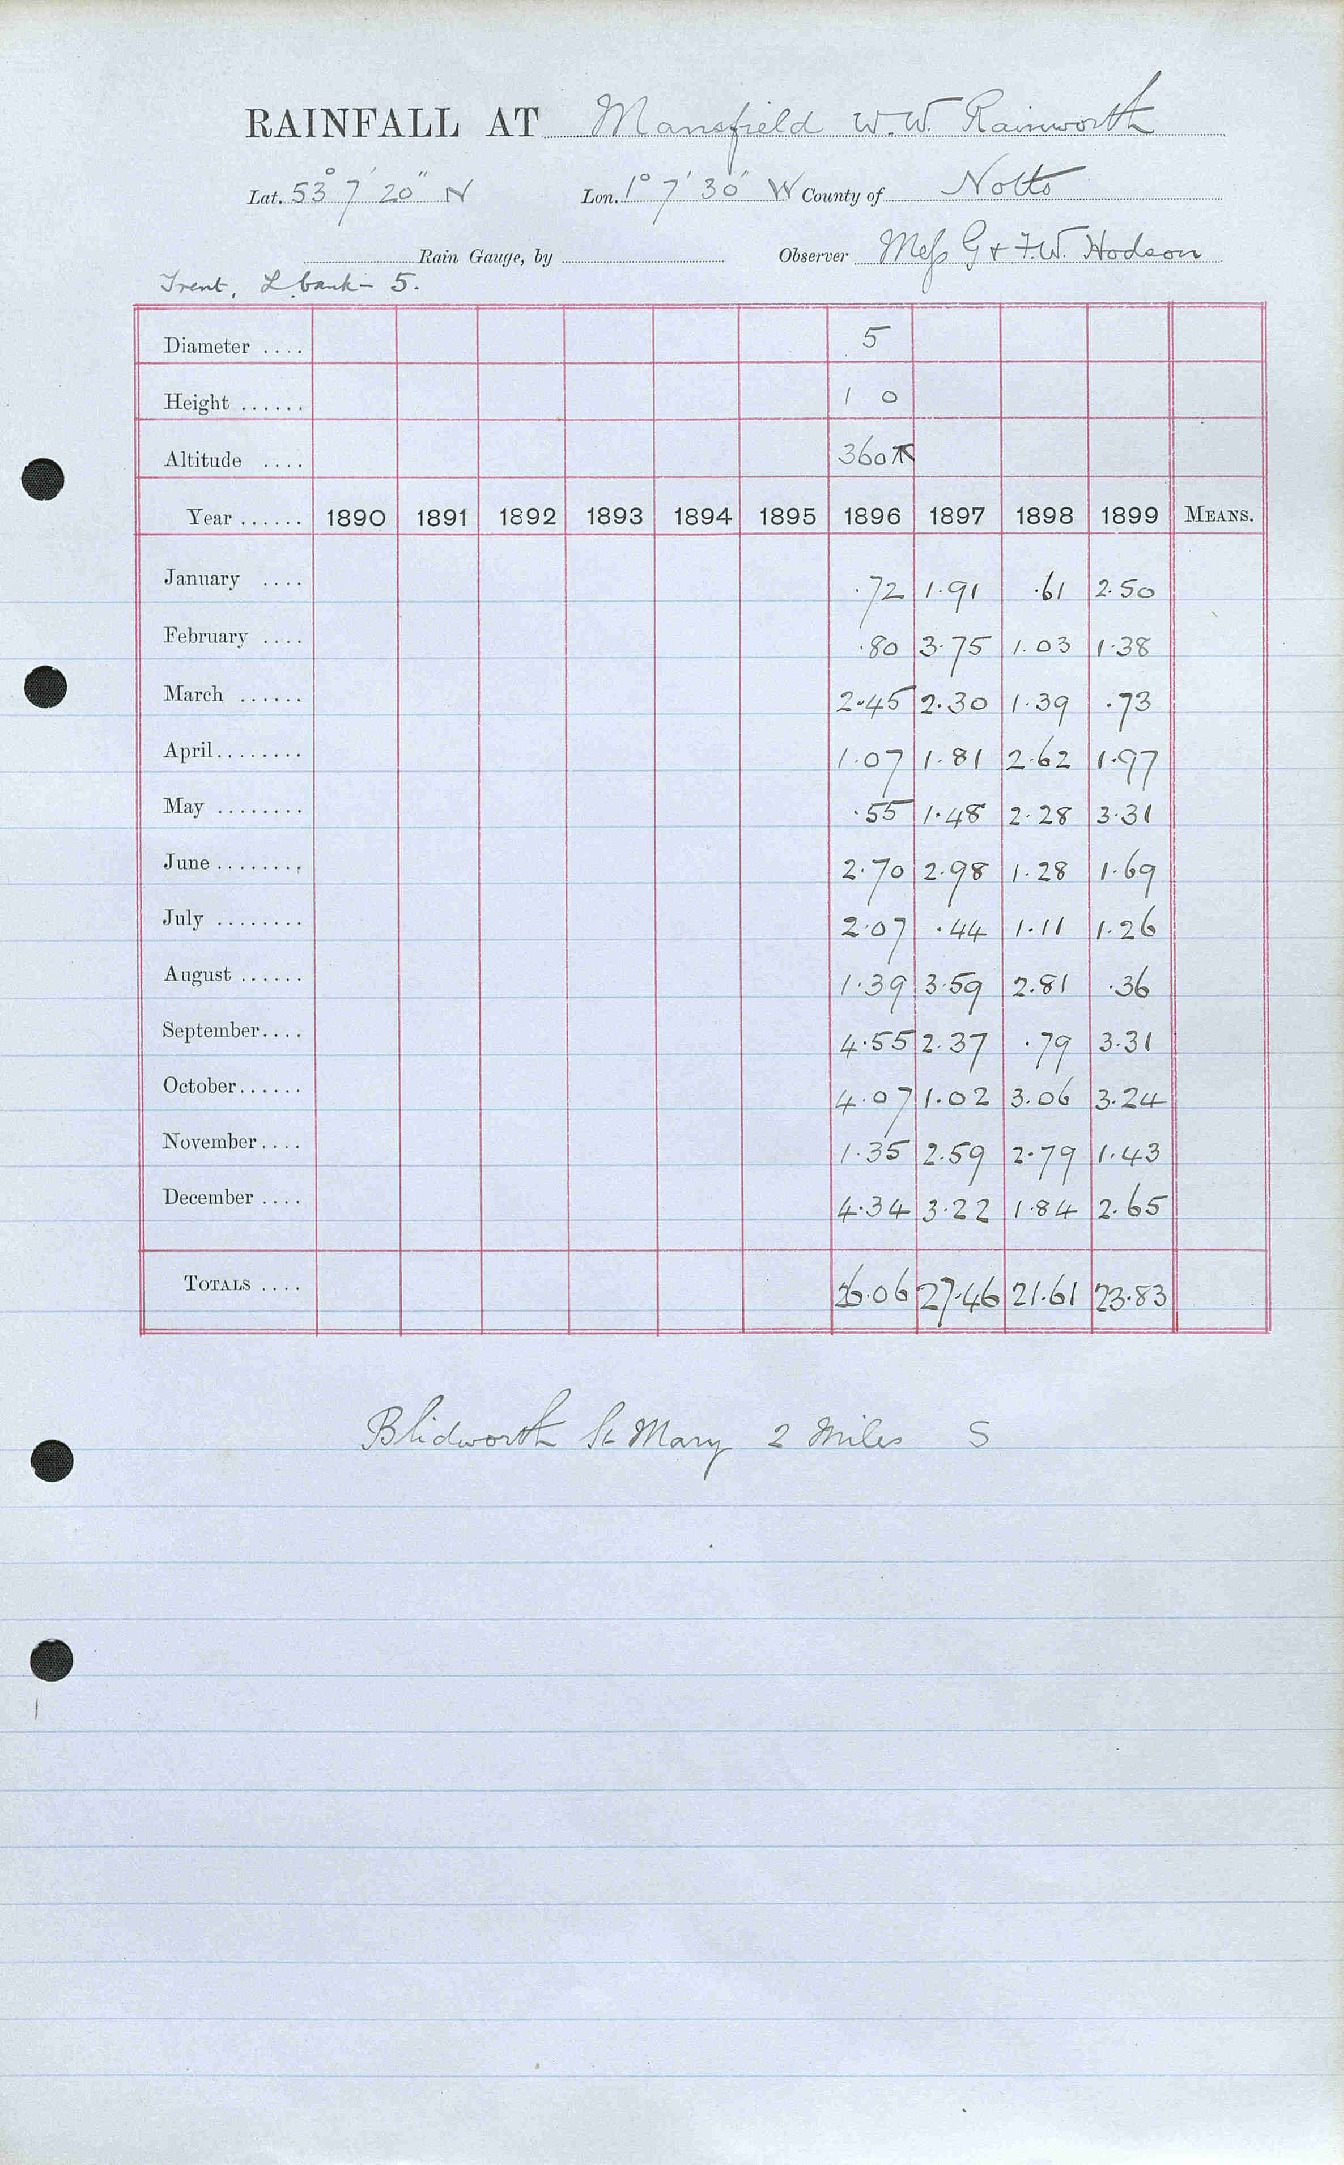 RAINFALL AT Mansfield W.W. Rainworth
Lat. 53° 7' 20" N Lon. 1° 7' 30" W County of Notts
Rain Gauge, by Observer Mess G & F.W. Hodson
Trent, L bank - 5.
Diameter .... 5
Height ...... 1 0
Altitude .... 360
Year ...... 1890 1891 1892 1893 1894 1895 1896 1897 1898 1899 MEANS.
January .... .72 1.91 .61 2.50
February .... .80 3.75 1.03 1.38
March ...... 2.45 2.30 1.39 .73
April ........ 1.07 1.81 2.62 1.97
May ........ .55 1.48 2.28 3.31
June ........ 2.70 2.98 1.28 1.69
July ........ 2.07 .44 1.11 1.26
August ...... 1.39 3.59 2.81 .36
September .... 4.55 2.37 .79 3.31
October ...... 4.07 1.02 3.06 3.24
November .... 1.35 2.59 2.79 1.43
December .... 4.34 3.22 1.84 2.65
TOTALS .... 26.06 27.46 21.61 23.83
Blidworth St Mary 2 Miles S